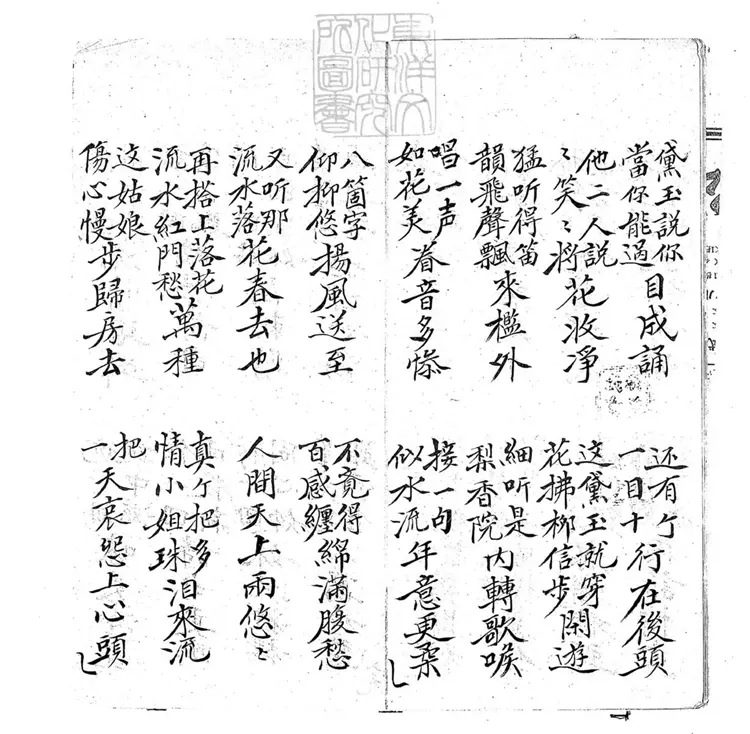 東洋文化研究所圖書
黛玉說你當你能過目成誦
还有个一目十行在後頭
他二人說〻笑〻將花收淨
这黛玉就穿花拂柳信步閑遊
猛听得笛韻飛聲飄來檻外
細听是梨香院内轉歌喉
唱一声如花美眷音多慘
接一句似水流年意更柔
八箇字仰抑悠揚風送至
不竟得百感纏綿滿腹愁
又听那流水落花春去也
人間天上兩悠〻
再搭上落花流水紅門愁萬種
真个把多情小姐珠泪來流
这姑娘傷心慢步歸房去
把一天哀怨上心頭